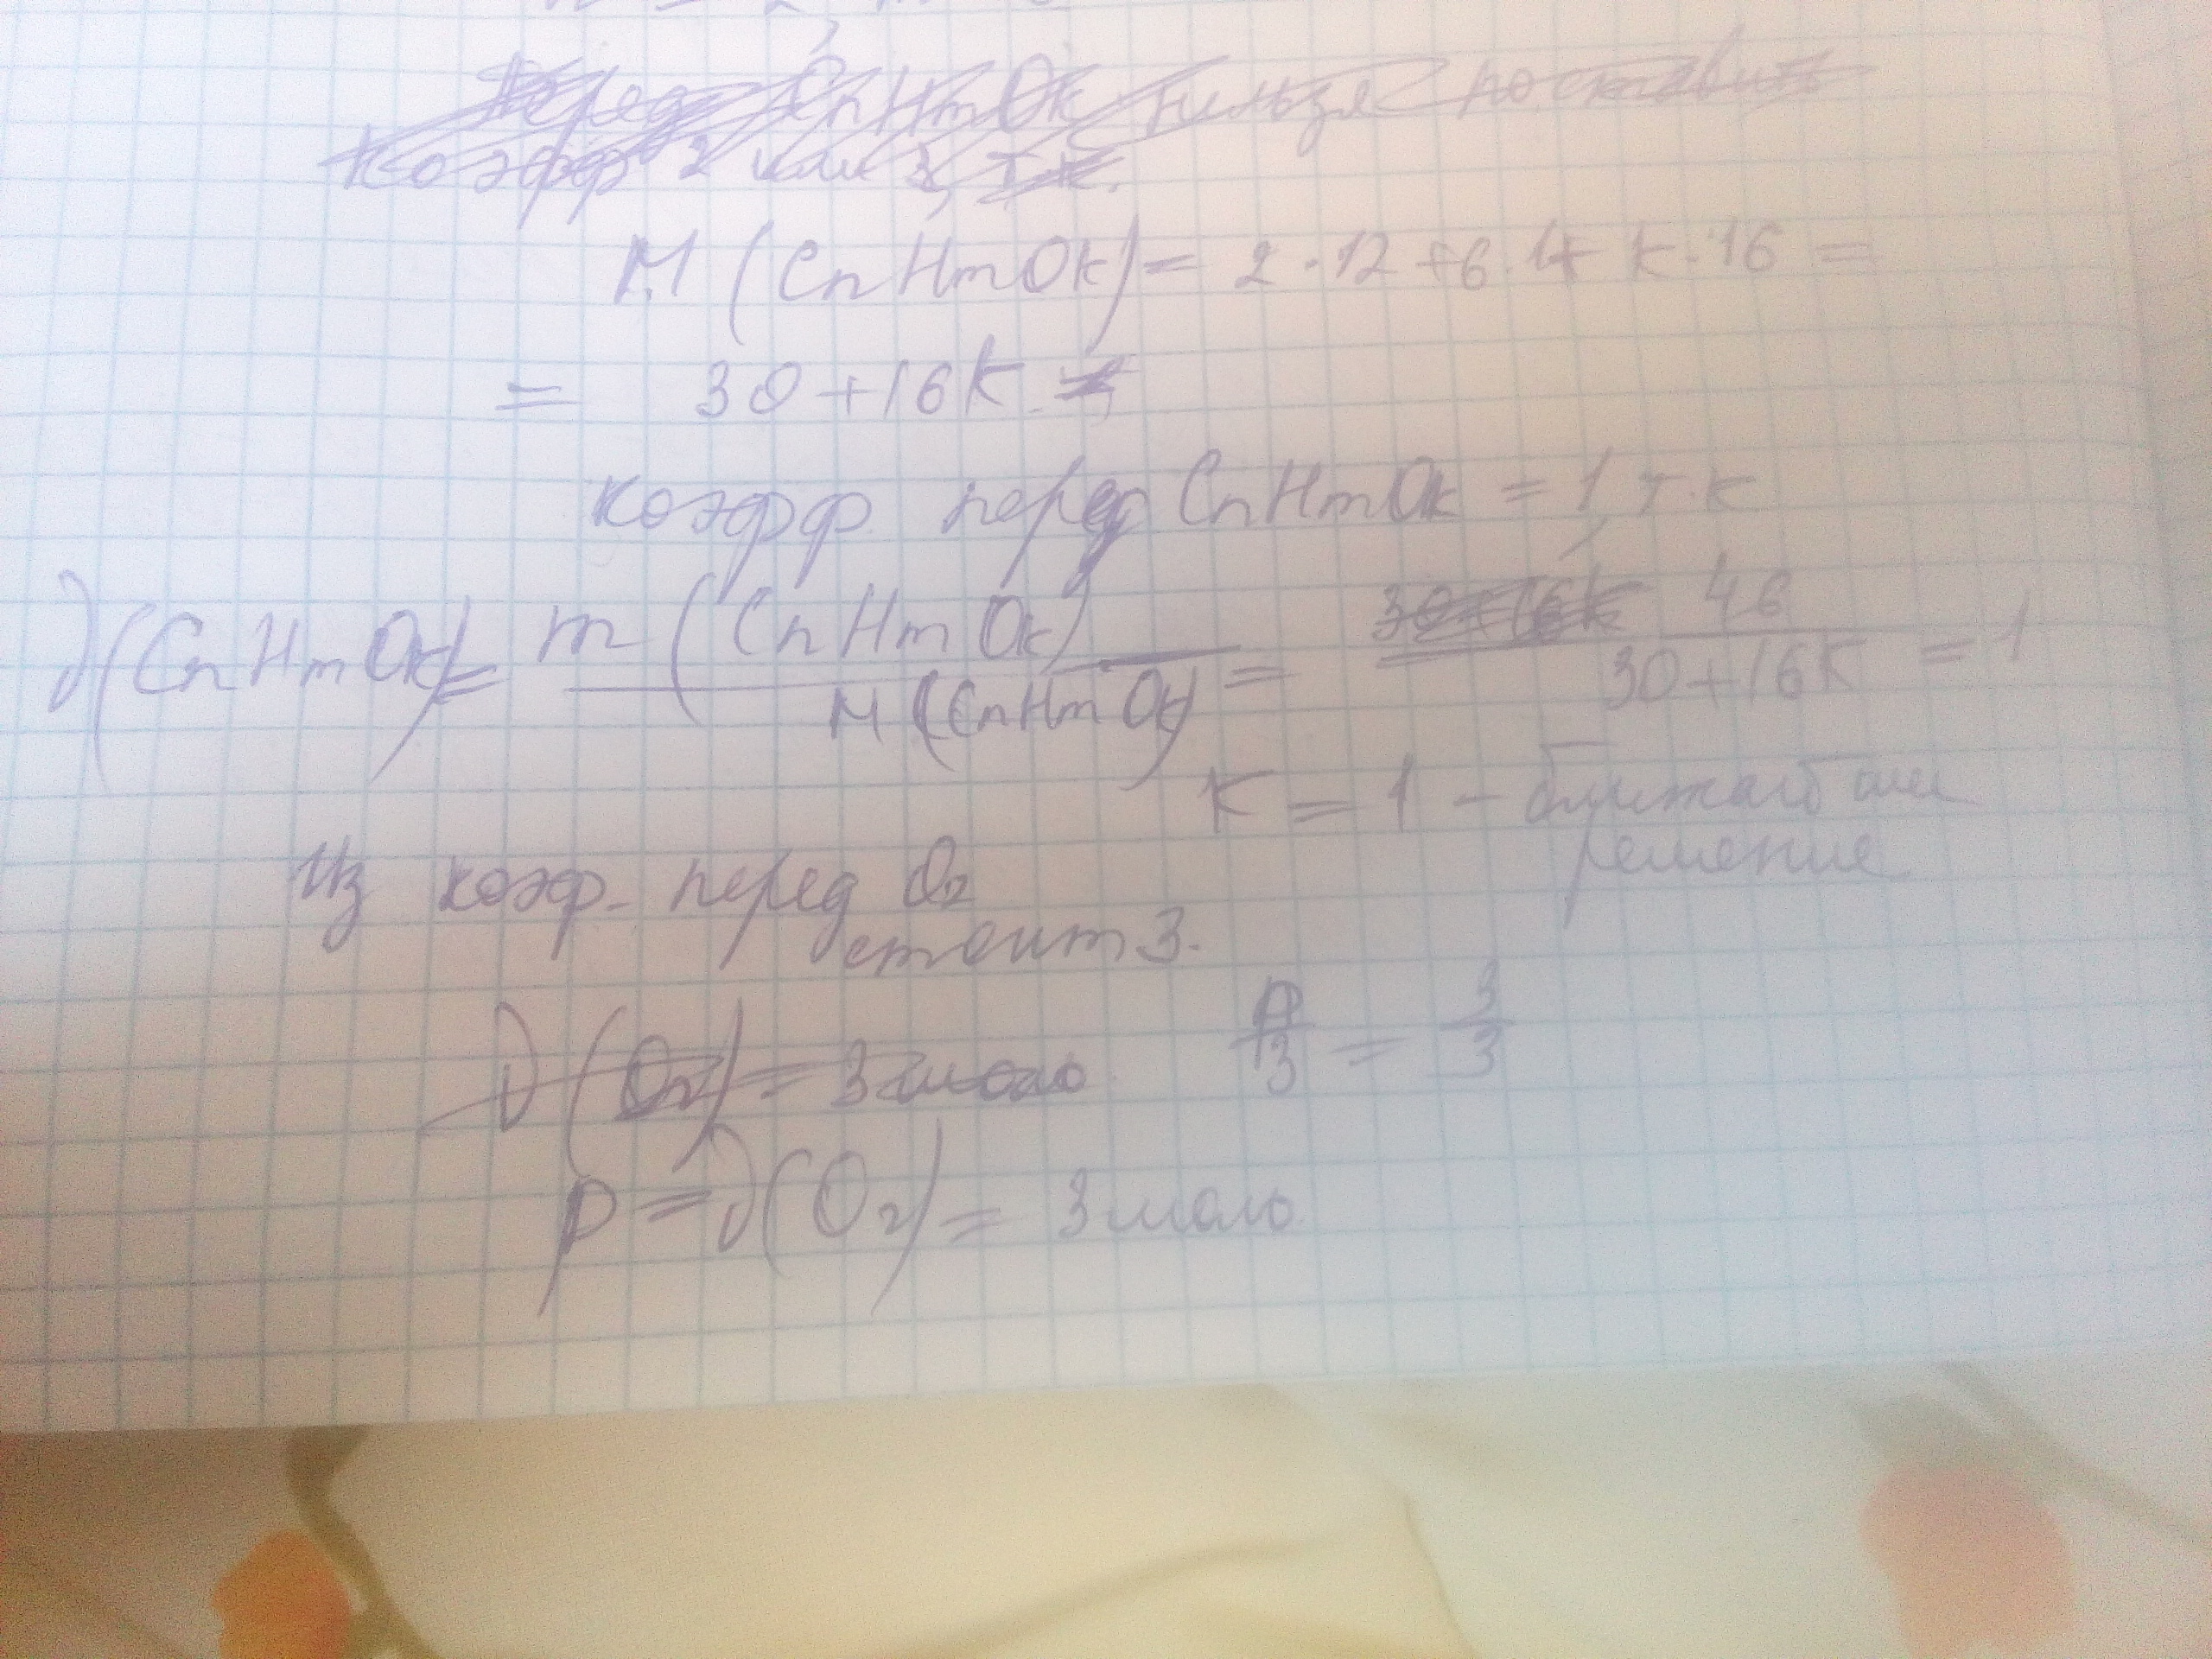 Перед CnHmOk нельзя поставить
коэфф 2 или 3, т.к.
M (CnHmOk) = 2·12+6·1+ k·16 =
= 30+16k
коэфф перед CnHmOk = 1, т.к
ν(CnHmOk) = m (CnHmOk) / M (CnHmOk) = 30+16k 46 / 30+16k = 1
k = 1 – ближайшее
решение
Из коэф. перед O2
стоит 3.
ν(O2) = 3 моль p/3 = 3/3
p = ν(O2) = 3 моль